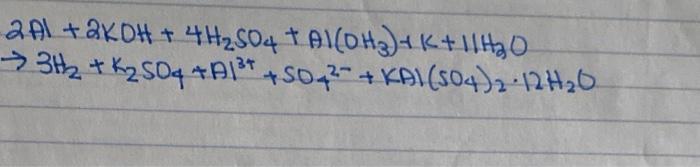 2Al + 2KOH + 4H₂SO₄ + Al(OH₃) + K + 11H₂O
→ 3H₂ + K₂SO₄ + Al³⁺ + SO₄²⁻ + KAl(SO₄)₂·12H₂O